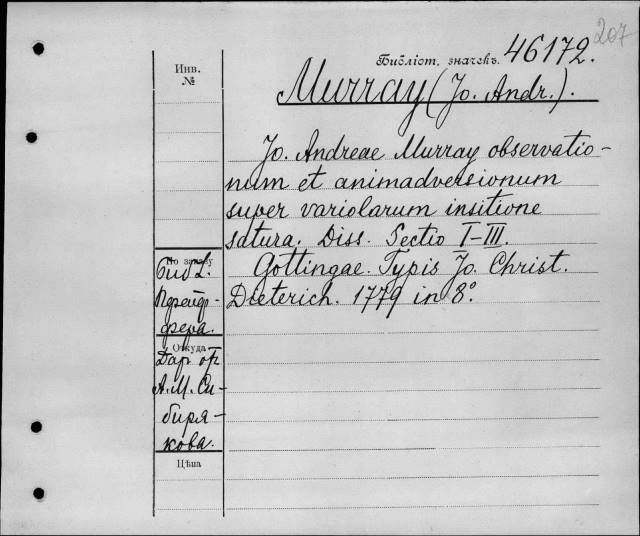 207
Библіот. значекъ. 46172.
Инв.
№
Murray (Jo. Andr.).
Jo. Andreae Murray observatio-
num et animadversionum
super variolarum insitione
satura. Diss. Sectio I-III.
Gottingae. Typis Jo. Christ.
Dieterich. 1779 in 8°.
По заказу
Откуда
Дар от
А. М. Си-
биря-
кова.
Цѣна